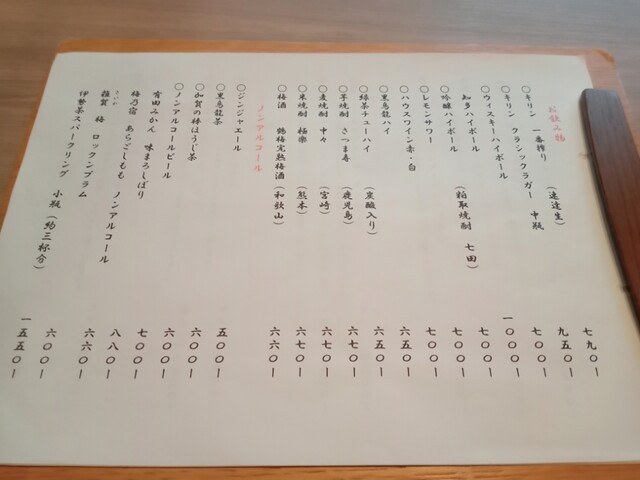 お飲み物
○キリン 一番搾り (速達生) 七九〇ー
○キリン クラシックラガー 中瓶 九五〇ー
○ウイスキーハイボール 七〇〇ー
知多ハイボール 一〇〇〇ー
吟醸ハイボール (粕取焼酎 七田) 七〇〇ー
○レモンサワー 七〇〇ー
○ハウスワイン赤・白 七〇〇ー
○黒烏龍ハイ 六五〇ー
○緑茶チューハイ (炭酸入り) 六五〇ー
○芋焼酎 さつま寿 (鹿児島) 六七〇ー
○麦焼酎 中々 (宮崎) 六七〇ー
○米焼酎 極楽 (熊本) 六七〇ー
○梅酒 鶴梅完熟梅酒 (和歌山) 六六〇ー
ノンアルコール
○ジンジャエール 五〇〇ー
○黒烏龍茶 六〇〇ー
○加賀の棒ほうじ茶 六〇〇ー
○ノンアルコールビール 七〇〇ー
有田みかん 味まろしぼり 八八〇ー
梅乃宿 あらごしもも ノンアルコール 六六〇ー
さいか
雑賀 梅 ロックンプラム 六〇〇ー
伊勢茶スパークリング 小瓶 (約三杯分) 一五五〇ー